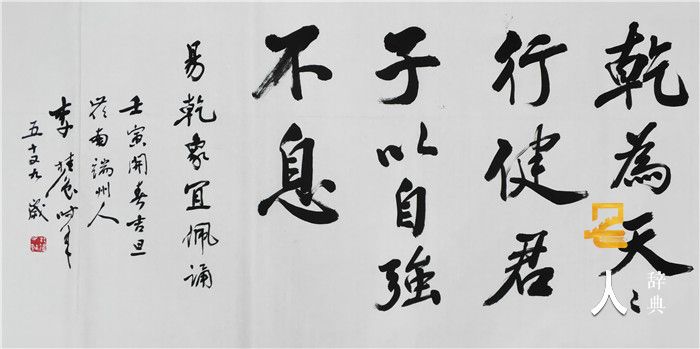 乾為天〻
行健君
子以自強
不息
易乾象宜佩誦
壬寅開春吉旦
岺南端州人
李桂時年
五十又九歲
人
辞典